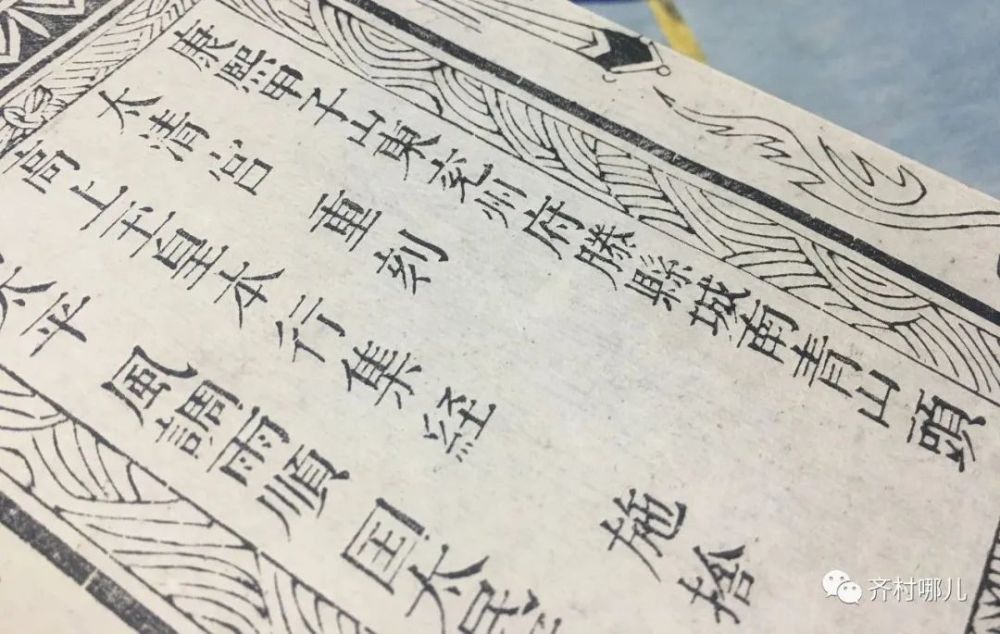 康熙甲子山東兖州府滕縣城南青山頭
太清宫 重刻
高上玉皇本行集経 施捨
太平 風調雨順 国太民
齐村哪儿